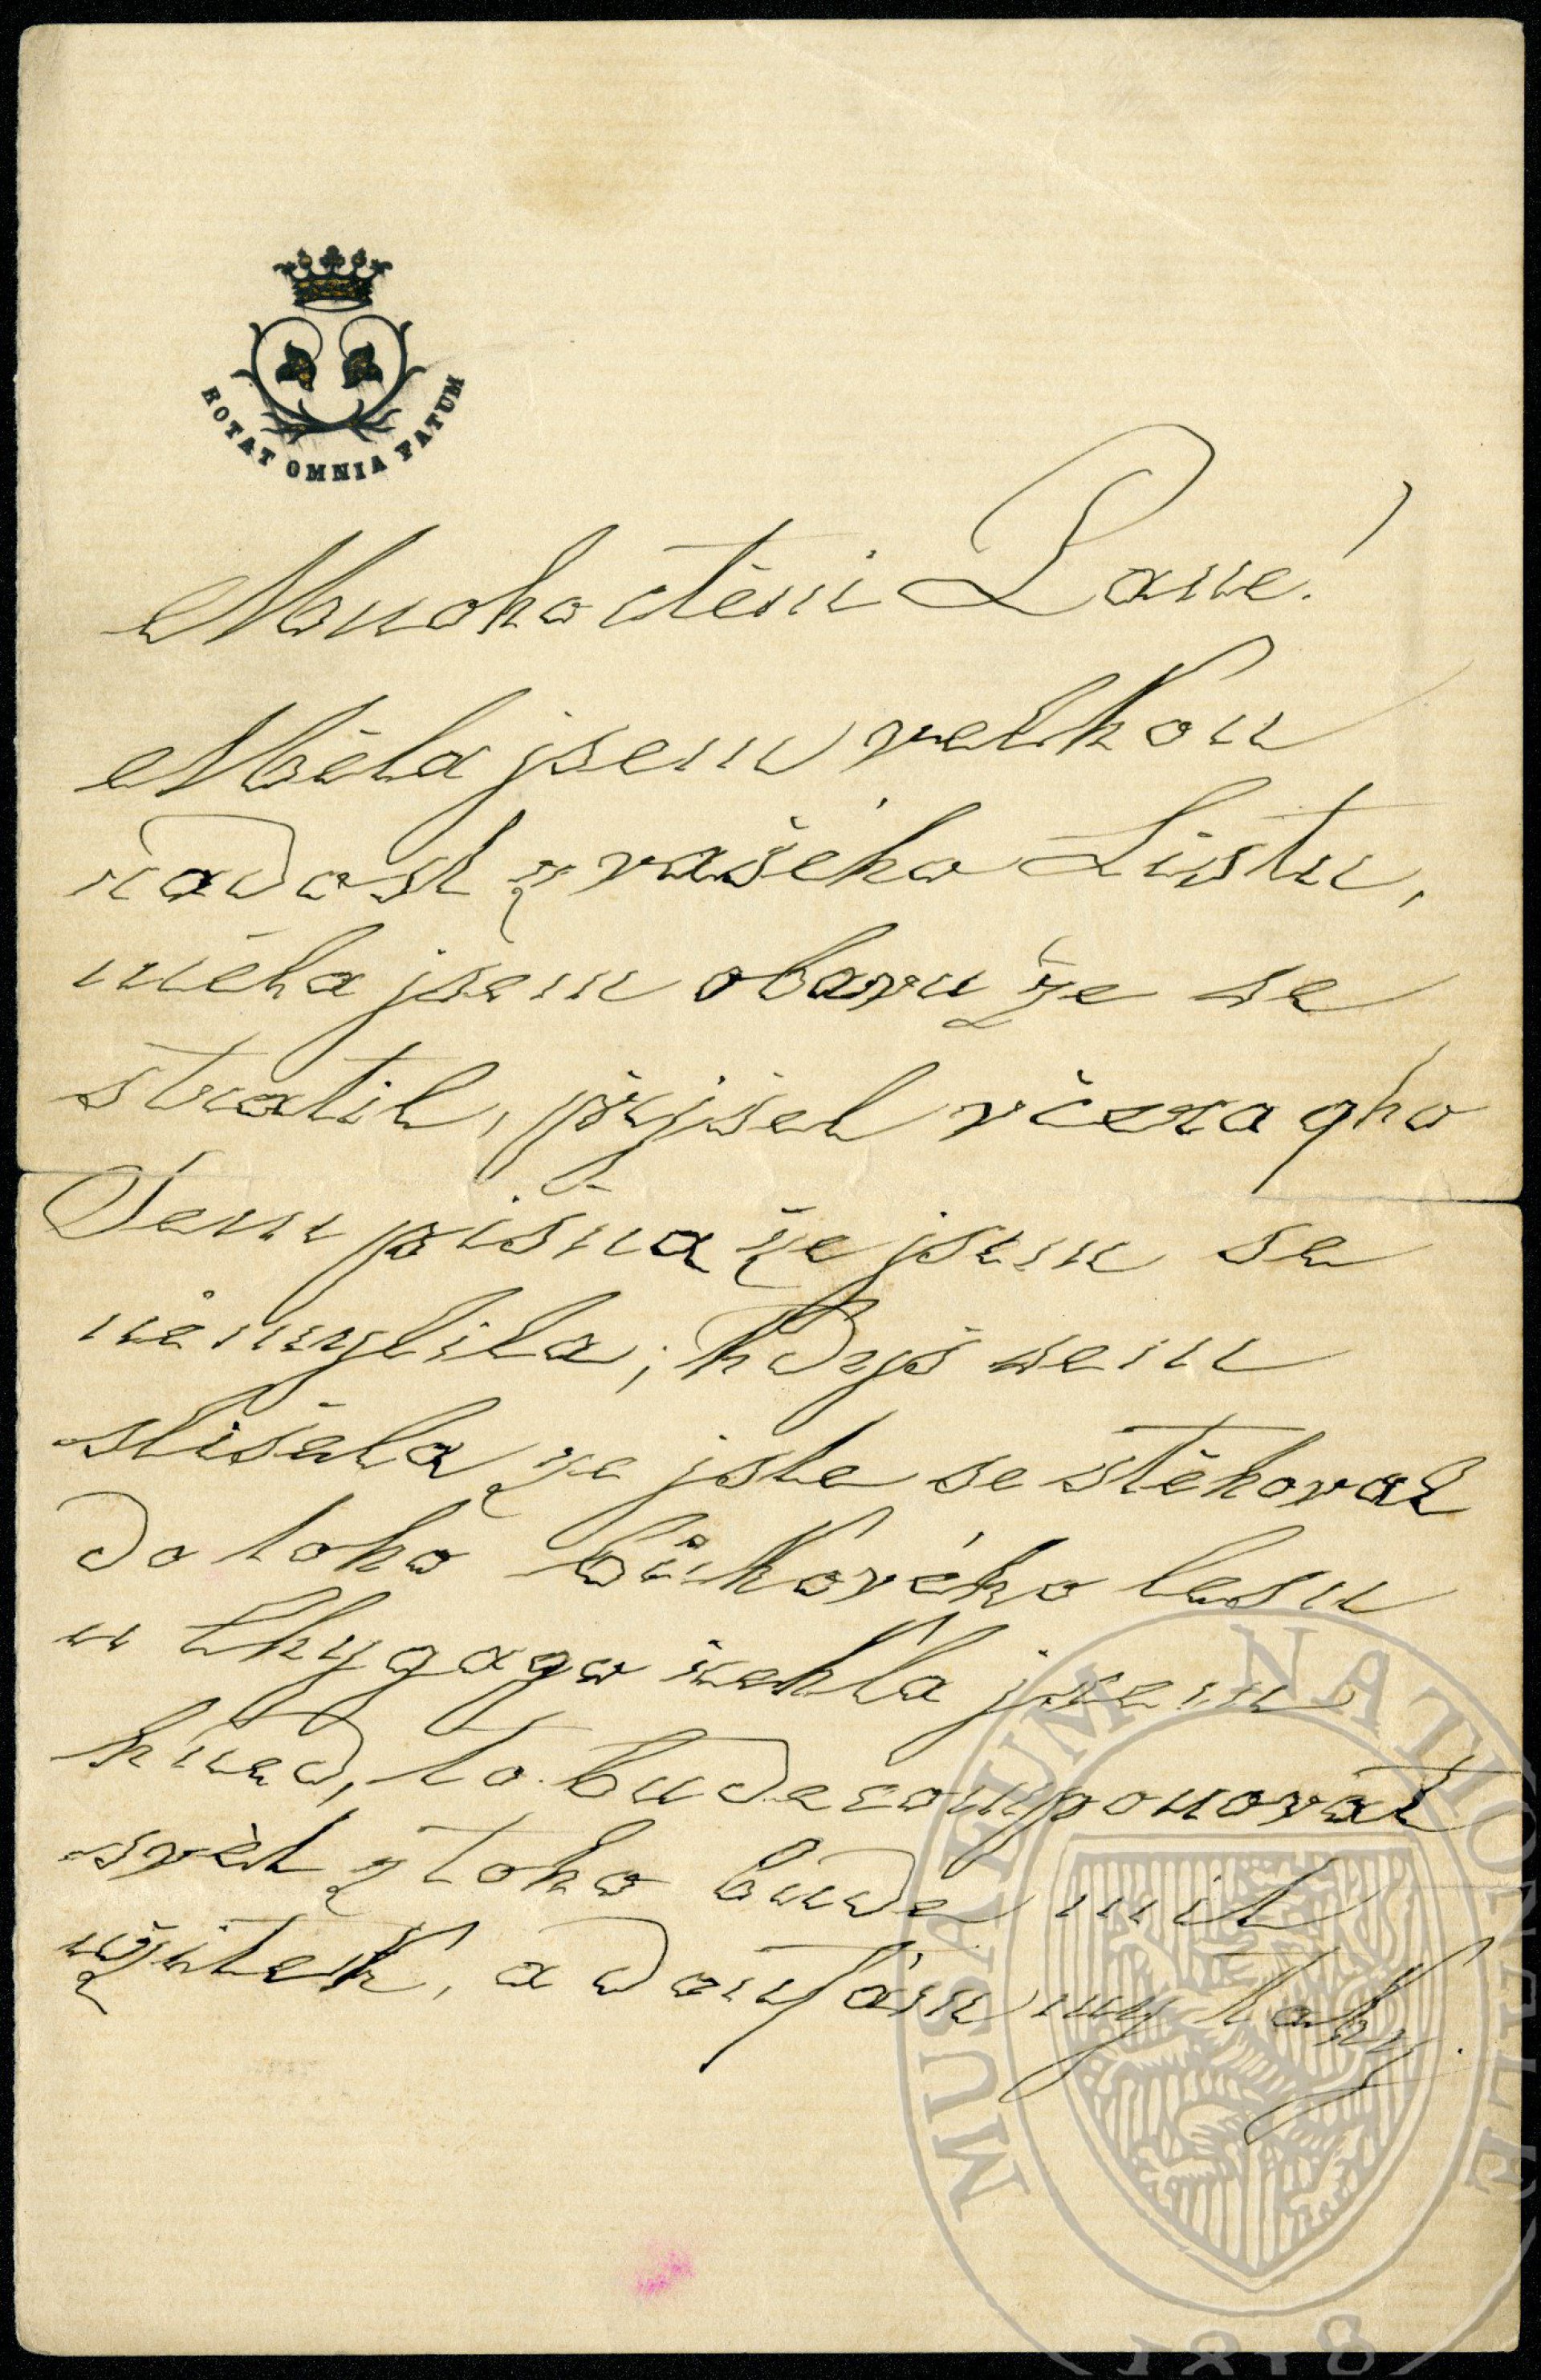 ROTAT OMNIA FATUM
Mnoho ctěni Pane!
Měla jsem velkou
radost z vašeho Listu,
měla jsem obavu že se
stratil, přijsel včera qho
Sem pisna že jsem se
nemylila; kdyš sem
slišela že jste se stěhoval
do toho bůkového lesu
u řekla jsem
hned, to bude componovat
svět z toho bude mit
užitek, a doufám my taky.
MUSAEUM NATIONALE
1818